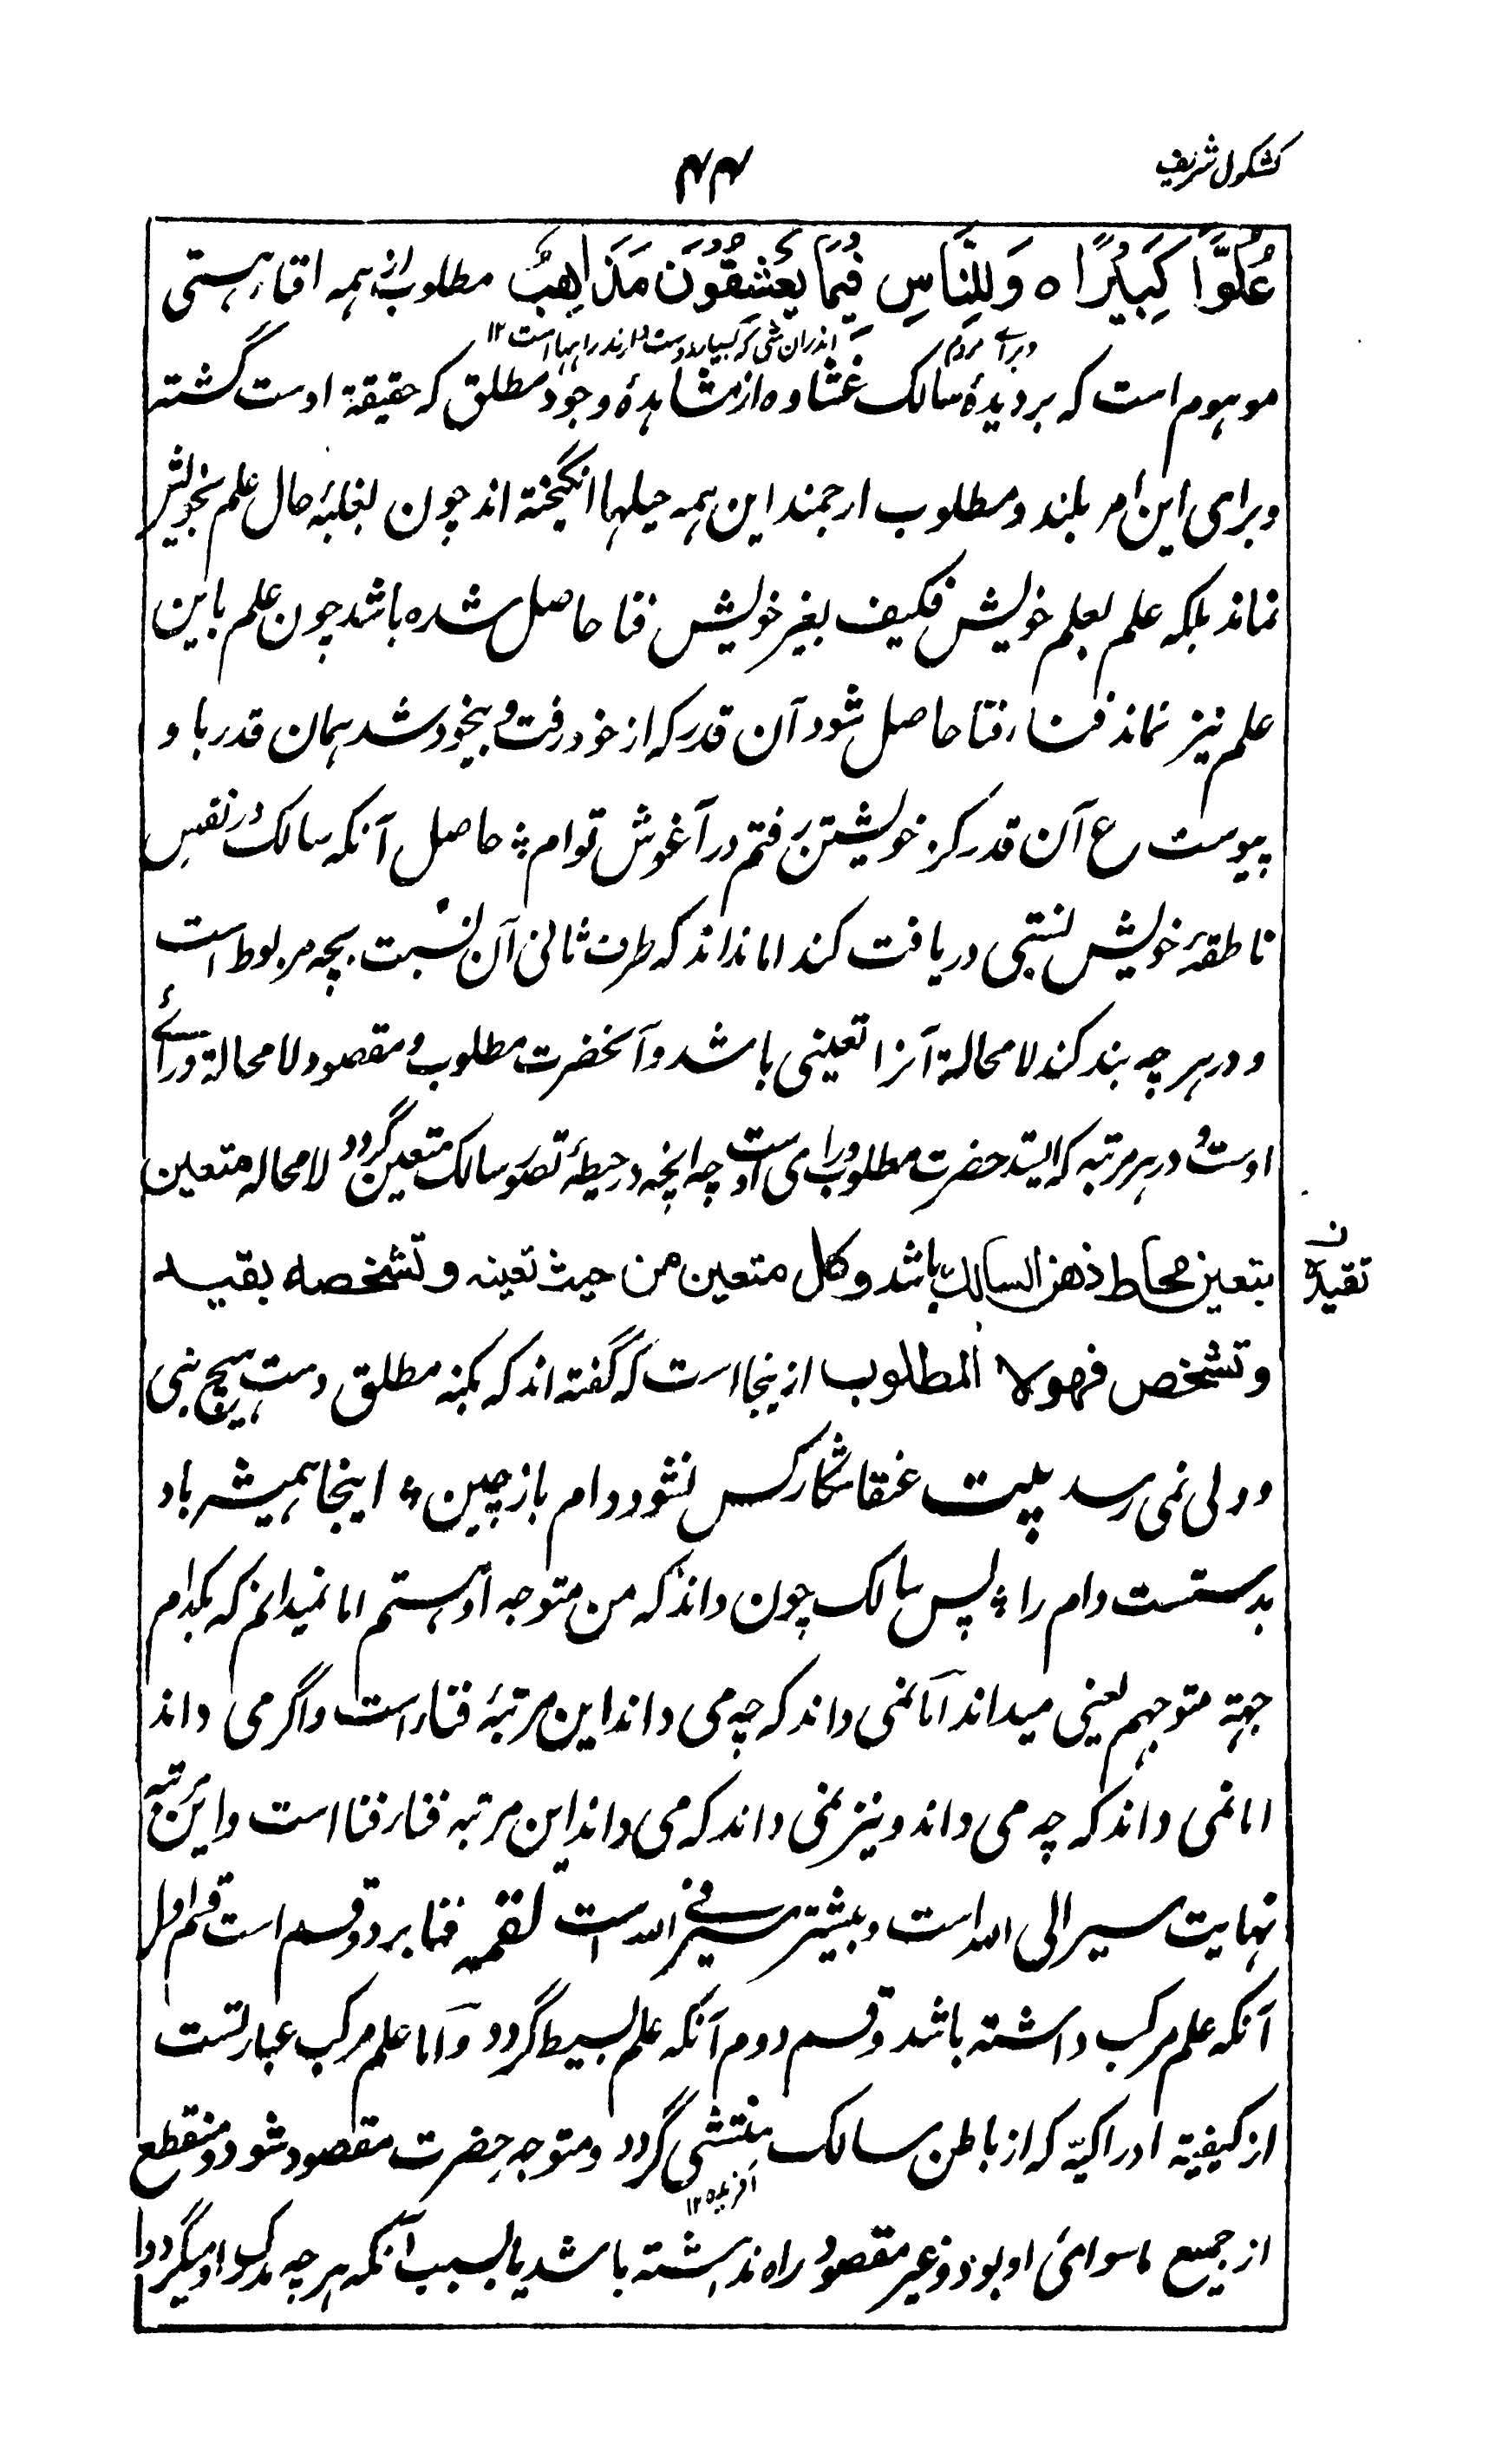 کشکول شریف
۴۴
عُلُوًّا كَبِيْرًا ہ وَلِلنَّاسِ فِيْمَا يَعْشِقُوْنَ مَذَاهِبُ مطلوب ازہمہ افنار ہستی
وبراے مردم اندران شی کہ بسیار دوست دارند راہہا است ۱۲
موہوم است کہ بردیدۂ سالک غشاوہ از مشاہدۂ وجود مطلق کہ حقیقۃ اوست گشتہ
وبرای این امر بلند ومطلوب ارجمند این ہمہ حیلہا انگیختہ اند چون بغلبۂ حال علم بخویش
نماند بلکہ علم بعلم خویش فکیف بغیر خویش فنا حاصل شدہ باشد چون علم باین
علم نیز نماند فنار فنا حاصل شود آن قدر کہ از خود رفت و بیخود شد ہمان قدر باو
پیوست ع آن قدر کز خویشتن رفتم در آغوش توام ؞ حاصل آنکہ سالک در نفس
ناطقۂ خویش نسبتی دریافت کند اما نداند کہ طرف ثانی آن نسبت بچہ مربوط است
و درہرچہ بند کند لا محالۃ آنرا تعینی باشد و آنحضرت مطلوب و مقصود لا محالۃ ورائے
اوست و درہر مرتبہ کہ ایستد حضرت مطلوب ورای اوست چہ انچہ در حیطۂ تصور سالک متعین گردد لا محالہ متعین
بتعین محاط ذهن السالک باشد وکل متعین من حیث تعینہ وتشخصہ بقید
تقیدہ ن
وتشخص فهو لا المطلوب ازینجا است کہ گفتہ اند کہ بکنہ مطلق دست ہیچ نبی
و ولی نمی رسد بیت عنقا شکار کس نشود دام باز چین ؞ اینجا ہمیشہ باد
بدستست دام را ؞ پس سالک چون داند کہ من متوجہ او ہستم اما نمیدانم کہ بکدام
جہۃ متوجہم یعنی میداند اما نمی داند کہ چہ می داند این مرتبۂ فنار است واگر می داند
اما نمی داند کہ چہ می داند ونیز نمی داند کہ می داند این مرتبہ فنار فنا است واین مرتبہ
نہایت سیر الی اللہ است وبیشتر سیر فی اللہ است لقمہ فنا بر دو قسم است قسم اول
آنکہ علم مرکب داشتہ باشد وقسم دوم آنکہ علم بسیط گردد واما علم مرکب عبارتست
از کیفیۃ ادراکیّہ کہ از باطن سالک منتشی گردد ومتوجہ حضرت مقصود شود ومنقطع
از جمیع ماسوائ او بود وغیر مقصود راہ نداشتہ باشد یا بسبب آنکہ ہرچہ مدرک او میگردد